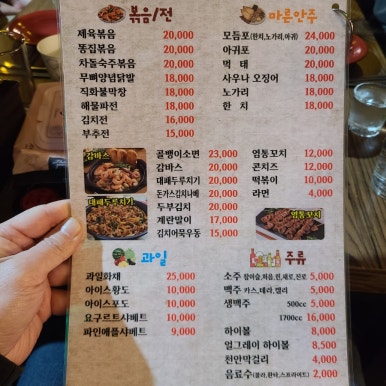 볶음/전
제육볶음 20,000
똥집볶음 20,000
차돌숙주볶음 20,000
무뼈양념닭발 18,000
직화불막창 18,000
해물파전 18,000
김치전 16,000
부추전 15,000
마른안주
모듬포(한치,노가리,아귀) 24,000
아귀포 20,000
먹 태 20,000
사우나 오징어 18,000
노가리 18,000
한 치 18,000
감바스
대패두루치기
골뱅이소면 23,000
감바스 20,000
대패두루치기 20,000
돈가스김치나베 20,000
두부김치 20,000
계란말이 17,000
김치어묵우동 15,000
염통꼬치 12,000
콘치즈 12,000
떡볶이 10,000
라면 4,000
염통꼬치
과일
과일화채 25,000
아이스황도 10,000
아이스포도 10,000
요구르트샤베트 10,000
파인애플샤베트 9,000
주류
소주 참이슬,처음,린,새로,진로 5,000
맥주 카스,테라,켈리 5,000
생맥주 500cc 5,000
1700cc 16,000
하이볼 8,000
얼그레이 하이볼 8,500
천안막걸리 4,000
음료수(콜라,환타,스프라이트) 2,000